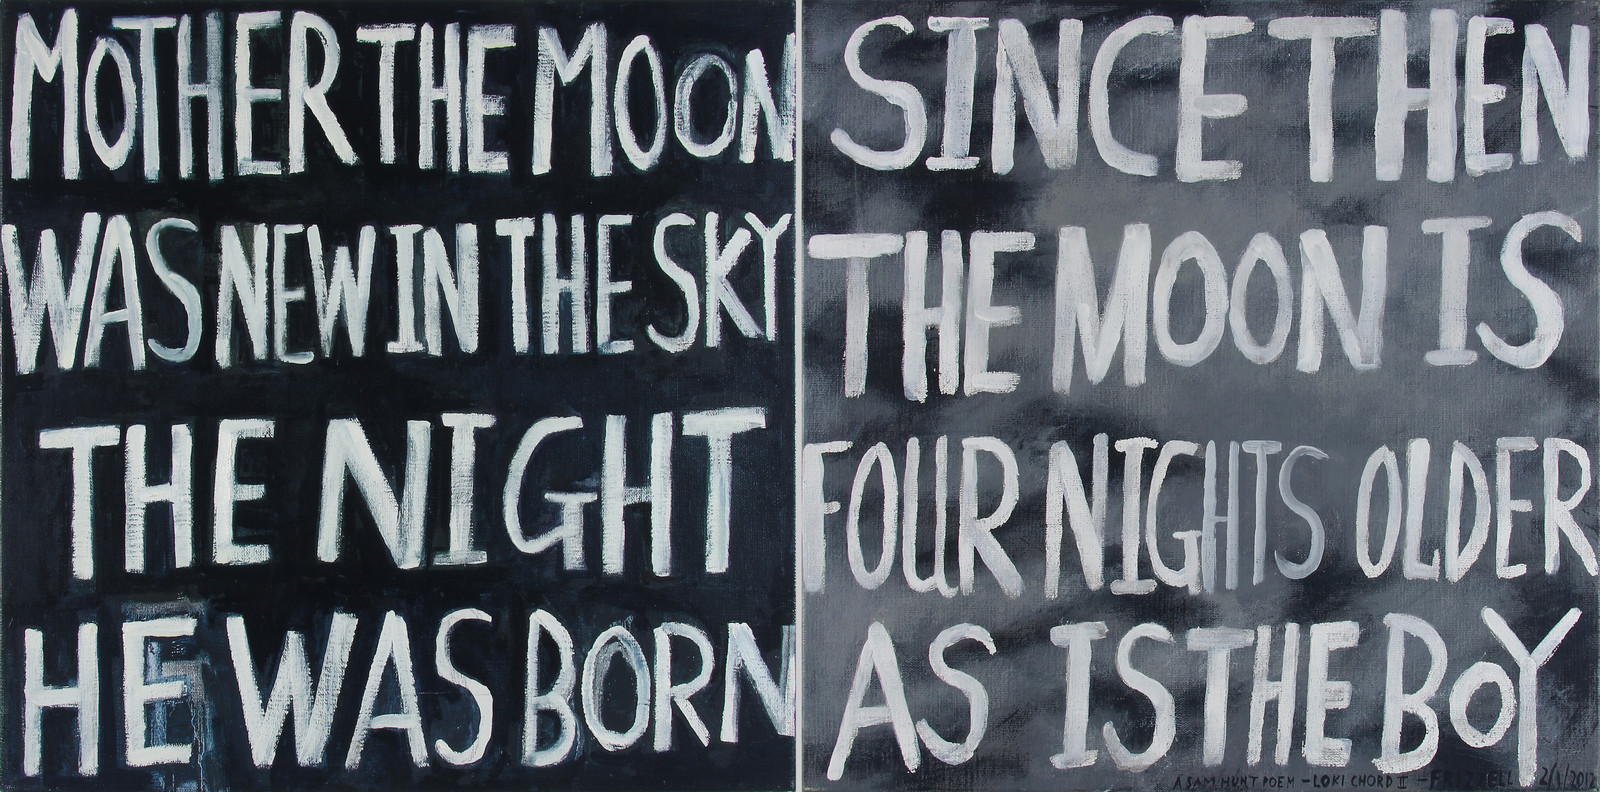 MOTHER THE MOON
WAS NEW IN THE SKY
THE NIGHT
HE WAS BORN
SINCE THEN
THE MOON IS
FOUR NIGHTS OLDER
AS IS THE BOY
A SAM HUNT POEM – LOKI CHORD II – FRIZZELL 2/1/2012